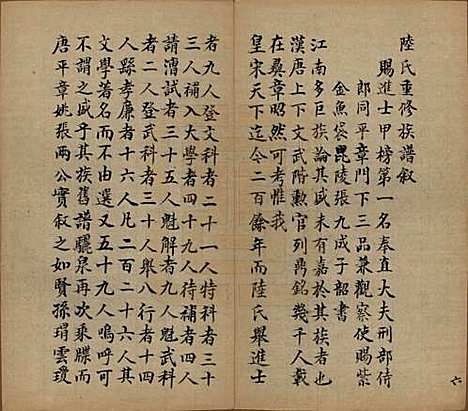 陸氏重修族譜叙
賜進士甲榜第一名奉直大夫刑部侍
郎同平章門下三品兼觀察使賜紫
金魚袋毘陵張九成子韶書
江南多巨族論其盛未有嘉於其族者也
漢唐上下文武階勲官列鼎銘幾千人載
在彞章昭然可考惟我
皇宋天下迄今二百餘年而陸氏舉進士
者九人登文科者二十一人特科者三十
三人補入大學者四十九人待補者四人
請漕試者三十五人魁解者九人魁武科
者二人登武科者三十人舉八行者十四
人縣孝廉者十六人凡二百二十六人其
文學著名而不由選又五十九人嗚呼可
不謂之盛乎其族舊譜驪泉再次乘牒而
唐平章姚張兩公實叙之如賢孫瑁雲瓊
六